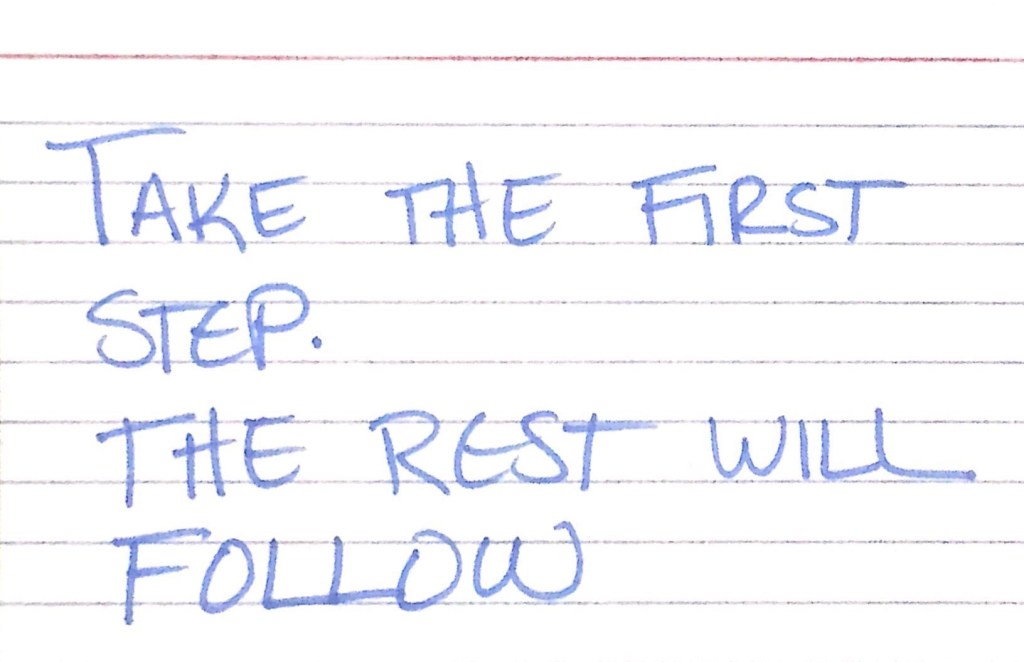 TAKE THE FIRST
STEP.
THE REST WILL
FOLLOW